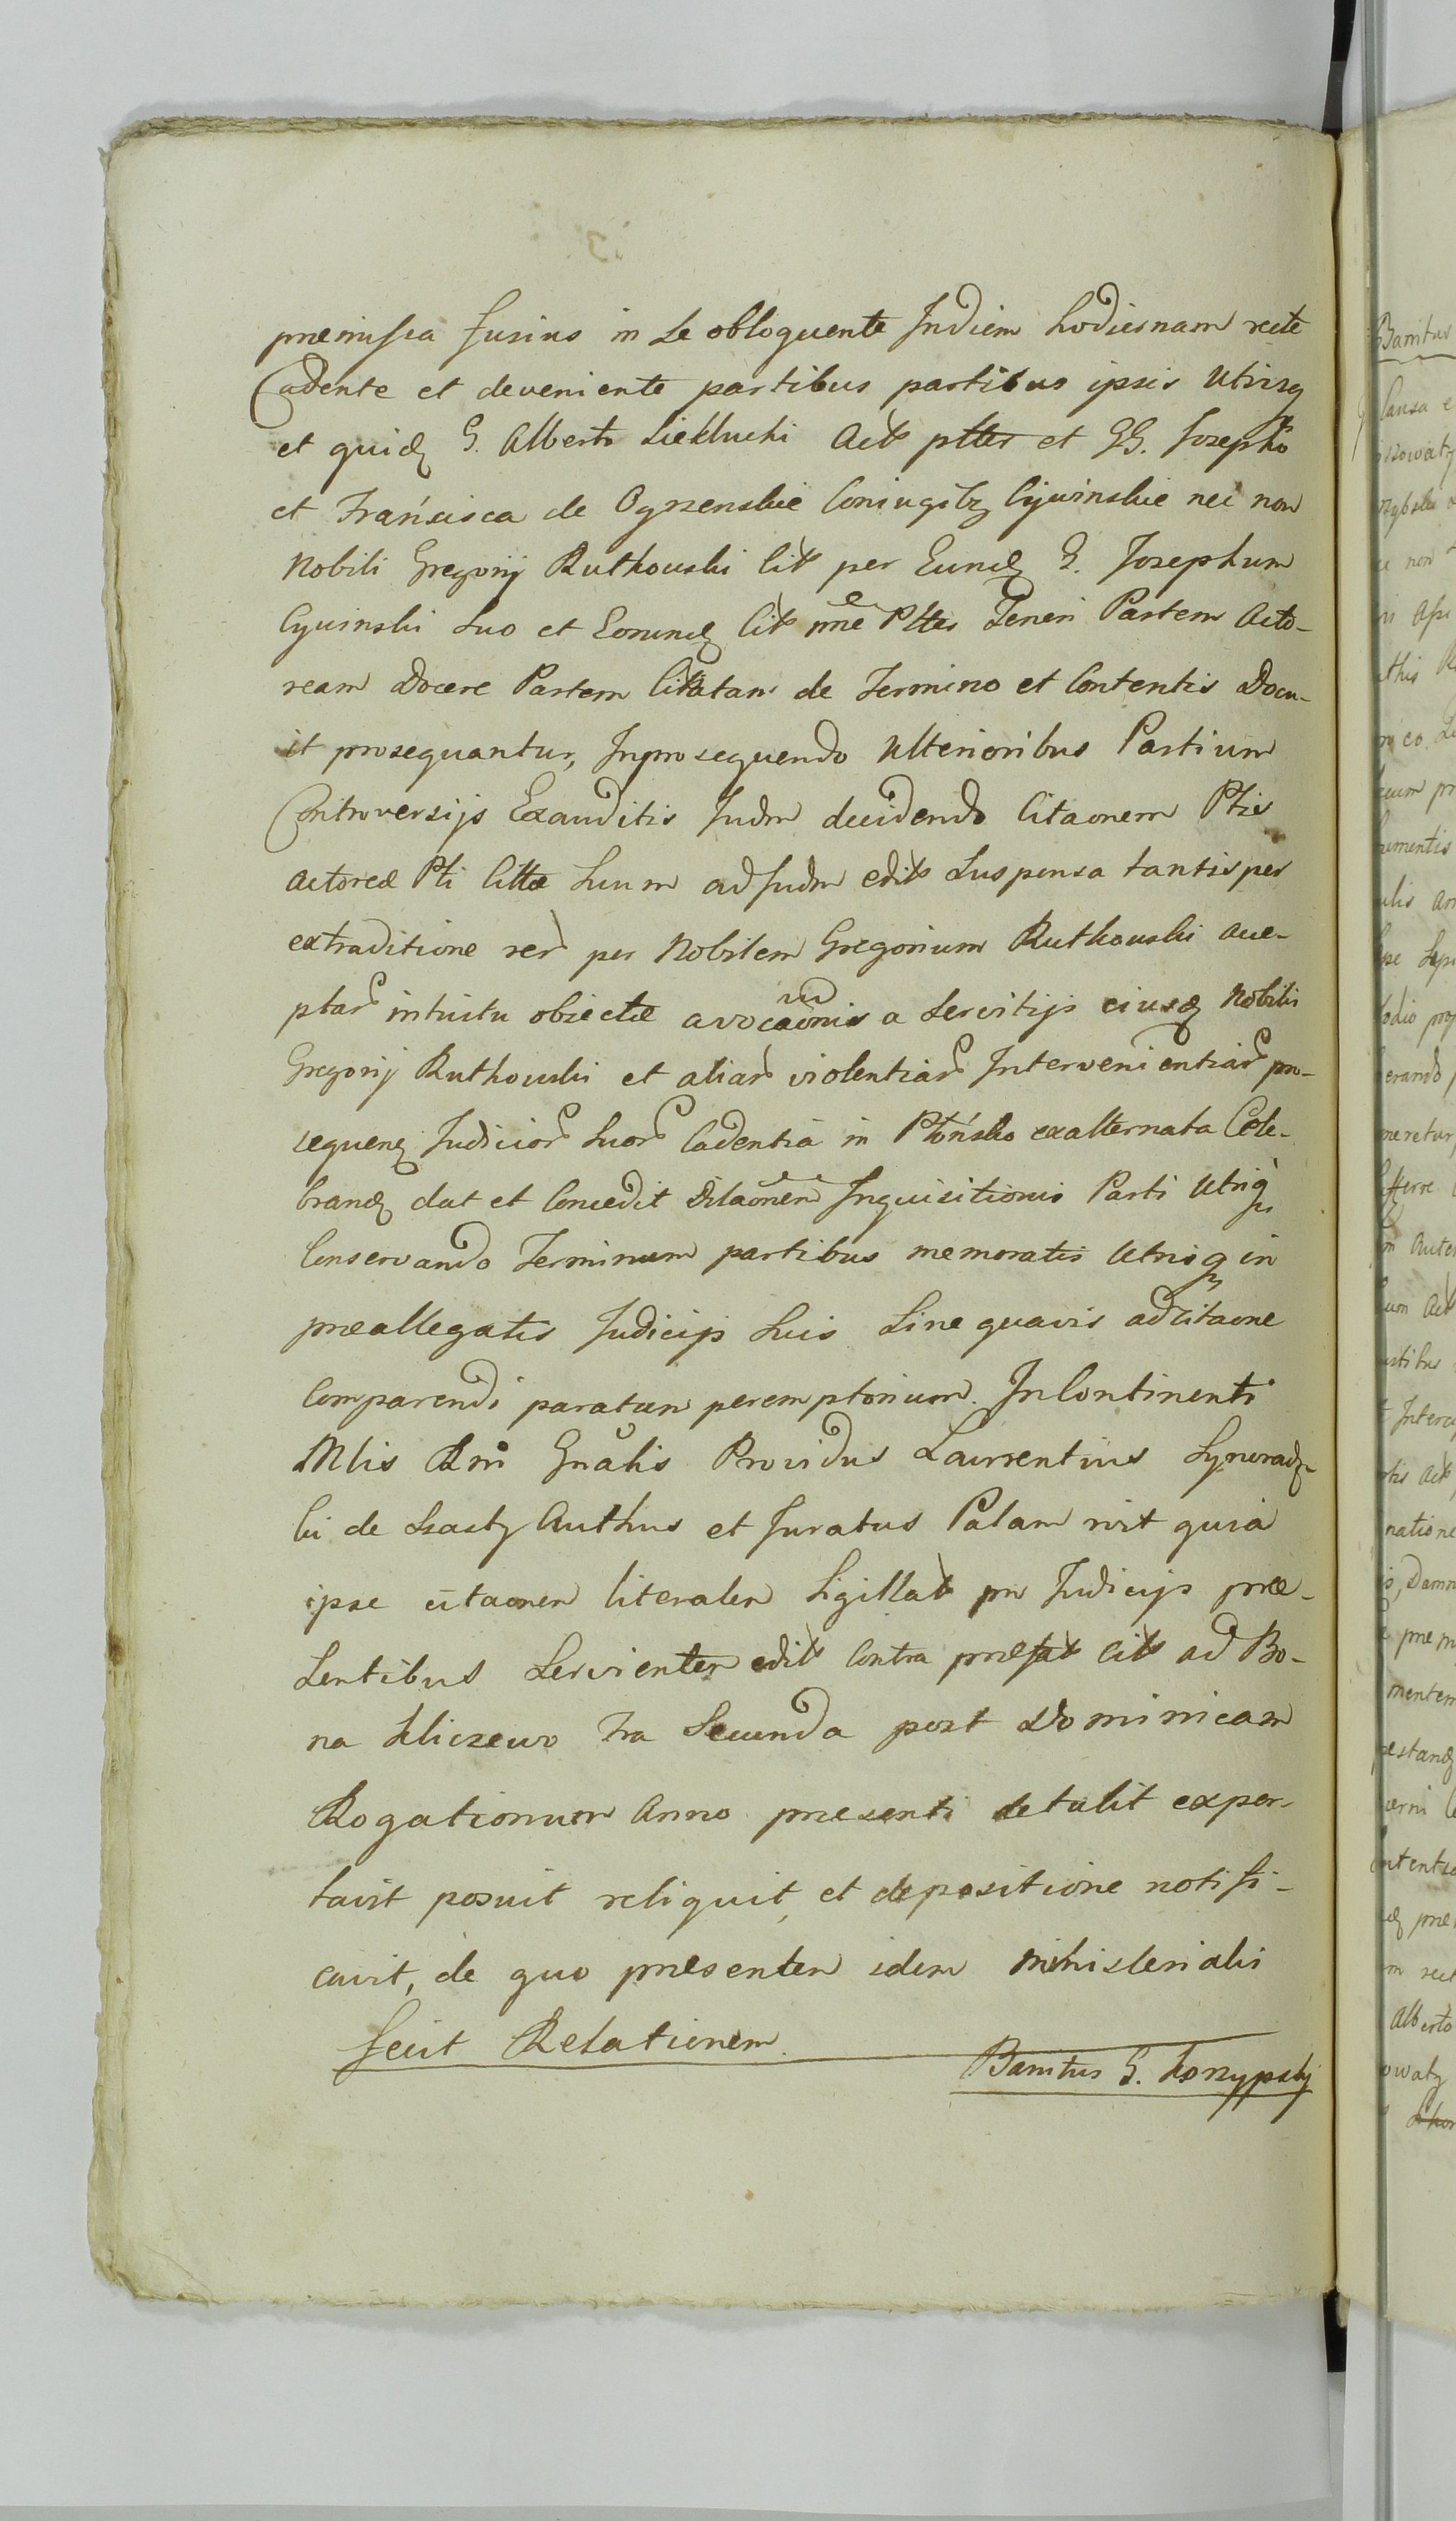 præmissa fusius in se obloquente Indiem hodiernam recte
Cadente et deveniente partibus partibus ipsis Utrisq
et quidz G. Alberto Siekluchi Act ptter et GG. Josepho
et Francisca de Ogrzenskie Coniugibz Cywinskie nec non
Nobili Gregorij Ruthowski Cit per Eundz G. Josephum
Cywinski Suo et Eorundz Cit nne Ptter Teneri Partem Acto-
ream Docere Partem Citatam de Termino et Contentis Docu-
it prosequantur, Inprosequendo Ulterioribus Partium
Controversijs Exauditis Judm decidendo Citaonem Ptis
Actoreæ Pti Cittæ Suum ad Judm edit Suspensa tantisper
extraditione rer per Nobilem Gregorium Ruthowski acce-
ptar intuitu obiectæ avocaonis a Servitijs eiusdz Nobilis
Gregorij Ruthowski et aliar violentiar Intervenientiar pro-
sequenz Judicior Suor Cadentia in Płońsko exalternata Cele-
brandz dat et Concedit Dilaonem Inquisitionis Parti Utriq
Conservando Terminum partibus memoratis Utrisq in
præallegatis Judicijs Suis Sine quavis adcitaone
Comparendi paratum peremptorium. Incontinenti
Mlis Rni Gnalis Providus Laurentius Synoradz-
ki de Szasty Authus et Juratus Palam rvit quia
ipse citaonem literalem Sigillat pn Judicijs præ-
sentibus Servientem edit Contra præfat Cit ad Bo-
na Kliczewo fra Secunda post Dominicam
Rogationum Anno præsenti detulit expor-
tavit posuit reliquit, et depositione notifi-
cavit, de quo præsentem idem Ministerialis
fecit Relationem.
Banitus G. Korzypsky